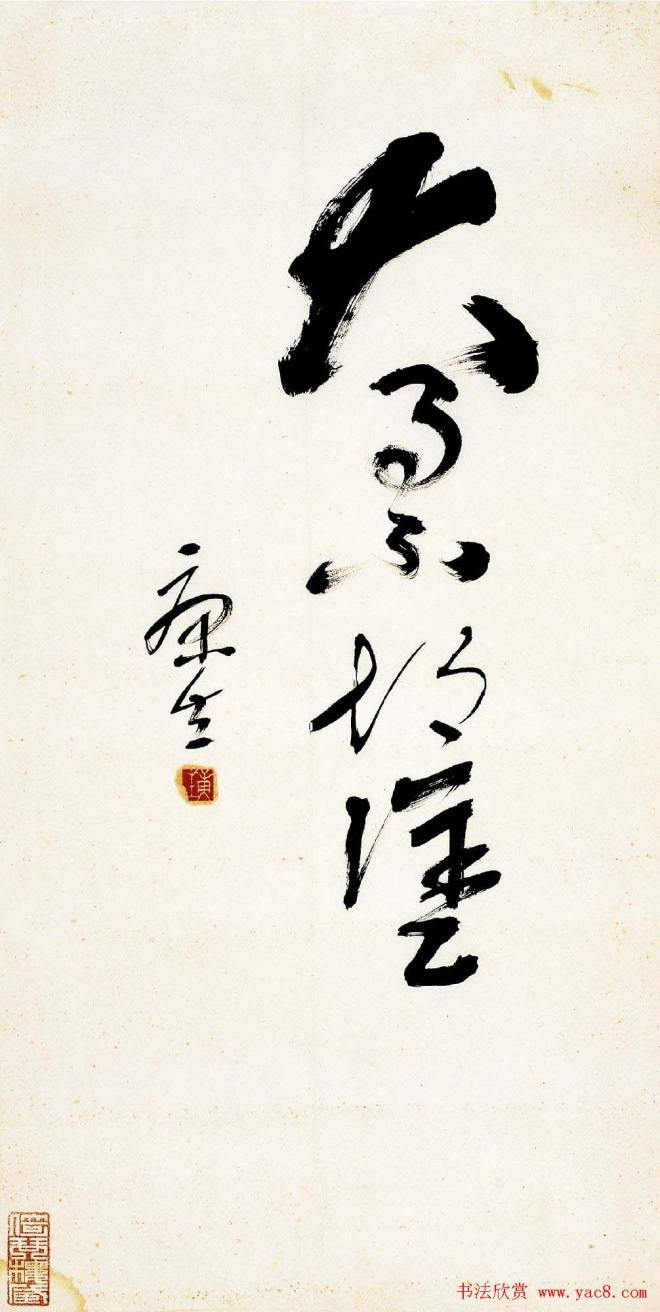 大事不糊塗
康生
书法欣赏 www.yac8.com